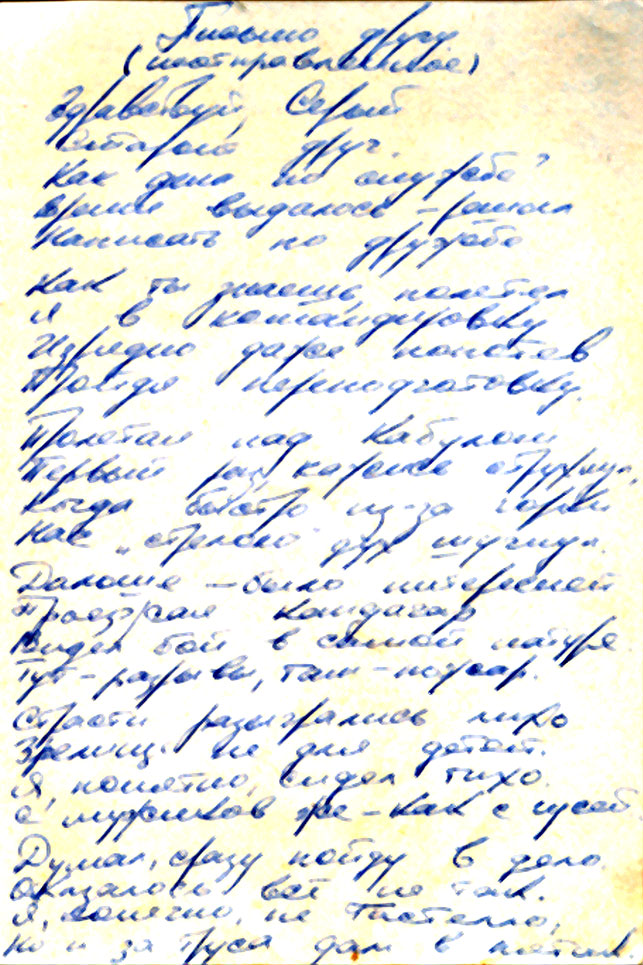 Письмо другу
(неотправленное)
Здравствуй, Серый
Старый друг.
Как дела по службе?
Время выдалось – решил
Написать по дружбе
Как ты знаешь, полетел
Я в командировку
Изрядно даже попотев
Пройдя переподготовку.
Полетал над Кабулом
Первый раз, кажись струхнул,
Когда быстро из-за горки
Нас „стрелою" дух шугнул.
Дальше – было интересней
Проезжал Кандагар
Видел бой в самой натуре
Тут – разрывы, там – пожар.
Страсти разыгрались лихо
Зрелищ не для детей.
Я, понятно, сидел тихо.
С мужиков же – как с гусей.
Думал, сразу пойду в дело.
Оказалось всё не так.
Я, конечно, не Гастелло,
Но и за труса дам в пятак.